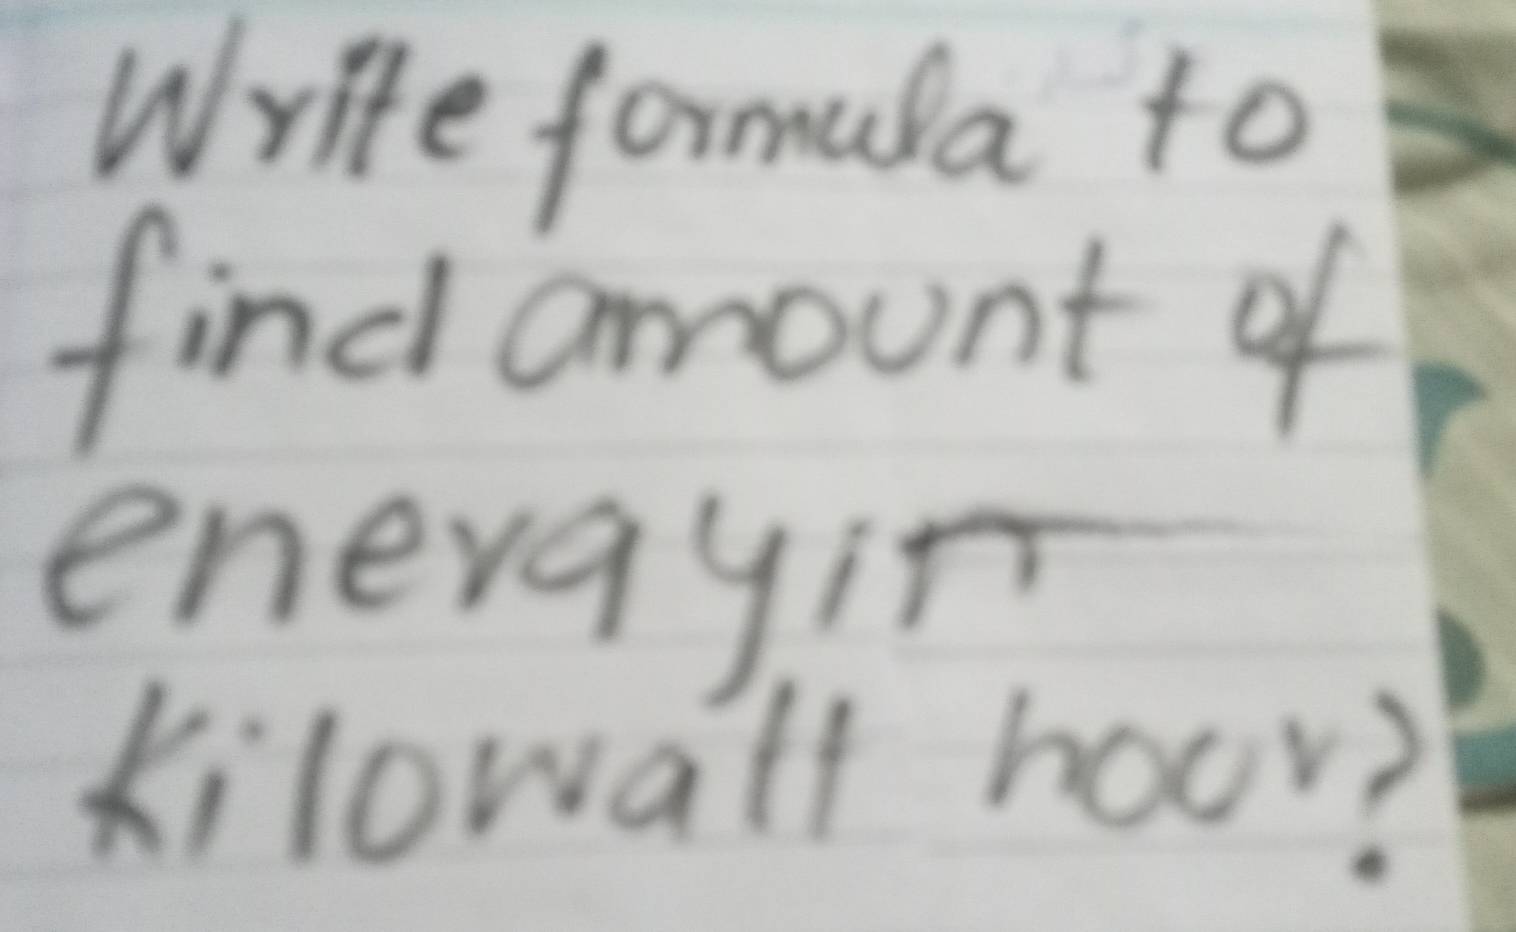 Write formula to
find amount of
energy in
kilowatt hour?